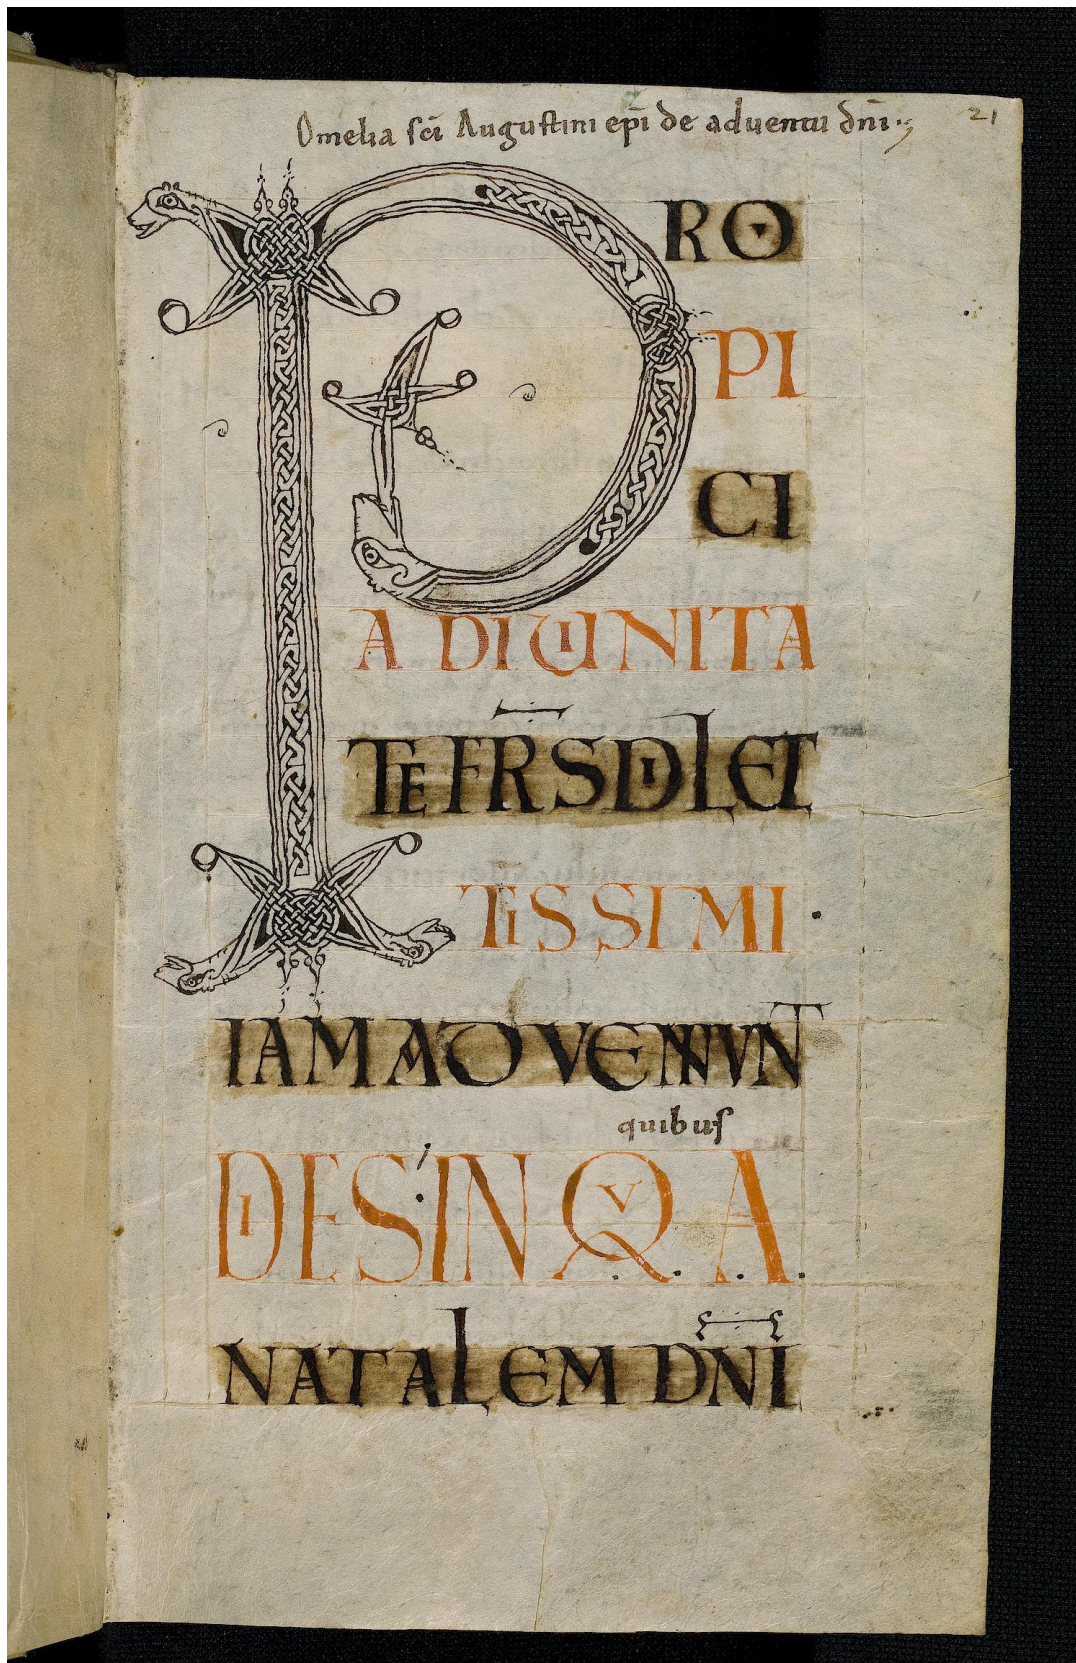 Omelia sc̄i Augustini ep̄i de aduentu dn̄i
21
PRO
PI
CI
A DIUINITA
TE FR̄S DILECT
TISSIMI ·
IAM ADVENIVNT
quibus
DIES · IN QVA
NATALEM DN̄I